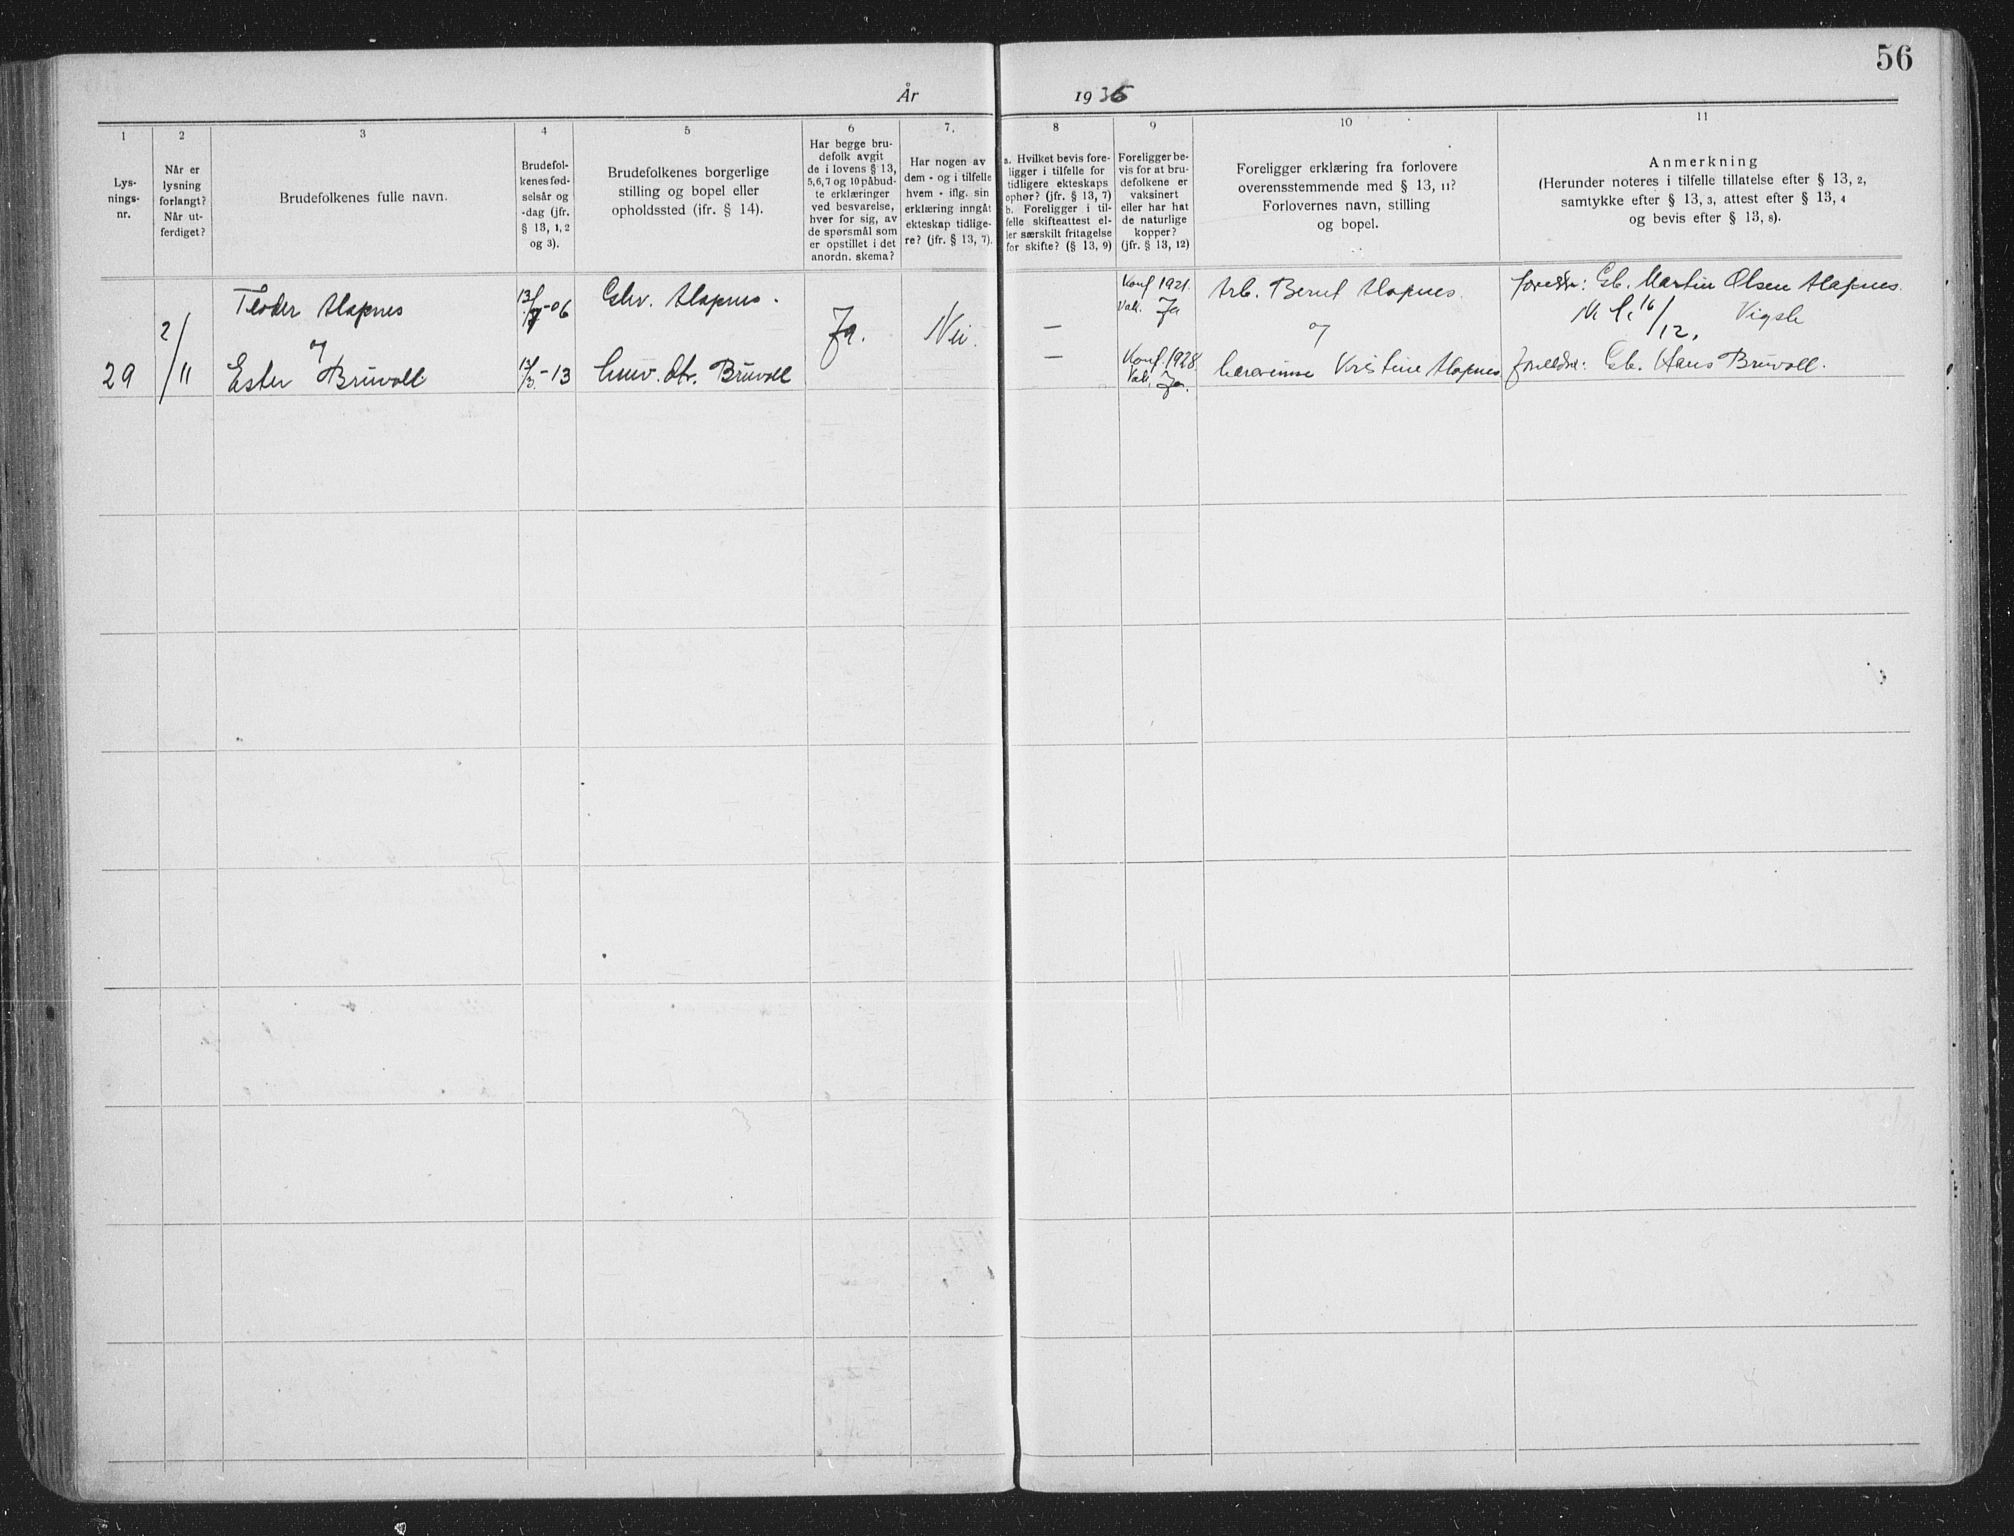 56
År 1936
1 2 3 4 5 6 7. 8 9 10 11
Lys-
nings-
nr.
Når er
lysning
forlangt?
Når ut-
ferdiget?
Brudefolkenes fulle navn.
Brudefol-
kenes fød-
selsår og
-dag (jfr.
§ 13, 1, 2
og 3).
Brudefolkenes borgerlige
stilling og bopel eller
opholdssted (ifr. § 14).
Har begge bru-
defolk avgit
de i lovens § 13,
5,6,7 og 10 påbud-
te erklæringer
ved besvarelse,
hver for sig, av
de spørsmål som
er opstillet i det
anordn. skema?
Har nogen av
dem - og i tilfelle
hvem - iflg. sin
erklæring inngåt
ekteskap tidlige-
re? (jfr. § 13, 7).
a. Hvilket bevis fore-
ligger i tilfelle for
tidligere ekteskaps
ophør? (jfr. § 13, 7)
b. Foreligger i til-
felle skifteattest el-
ler særskilt fritagelse
for skifte? (§ 13, 9)
Foreligger be-
vis for at bru-
defolkene er
vaksinert
eller har hat
de naturlige
kopper?
(jfr. § 13, 12)
Foreligger erklæring fra forlovere
overensstemmende med § 13, 11?
Forlovernes navn, stilling
og bopel.
Anmerkning
(Herunder noteres i tilfelle tillatelse efter § 13, 2,
samtykke efter § 13, 3, attest efter § 13, 4
og bevis efter § 13, 8).
29
2/11
Teodor Alapnes
og
Ester Bruvoll
13/7-06
13/3-13
Alapnes.
Bruvoll
Ja.
Nei.
—
—
Konf 1921.
Vak. Ja
Konf. 1928
Vak. Ja.
Arb. Bernt Alapnes.
og
Kristine Alapnes
foreldre: Gb. Martin Olsen Alapnes.
16/12.
foreldre: Gb. Hans Bruvoll.